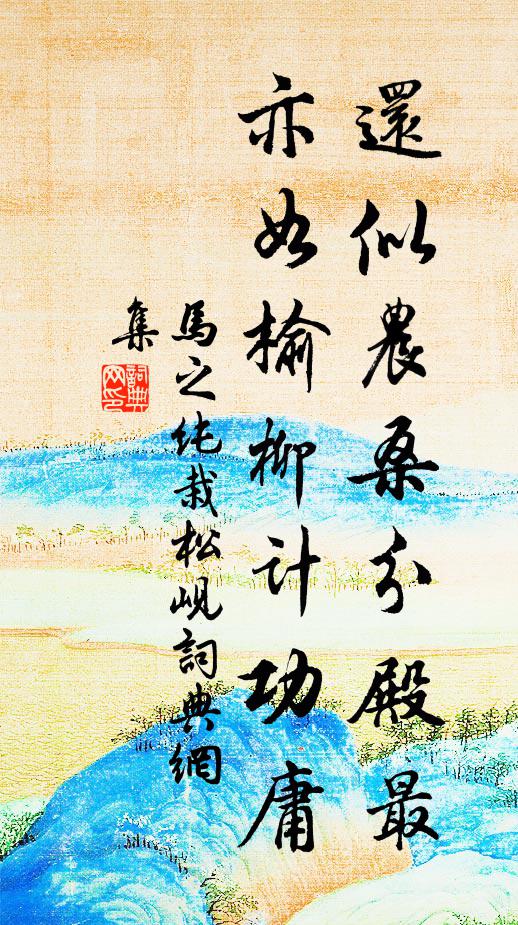 還似農桑分殿最
亦如榆柳計功庸
馬之純栽松峴詞典網
集
詞典網印